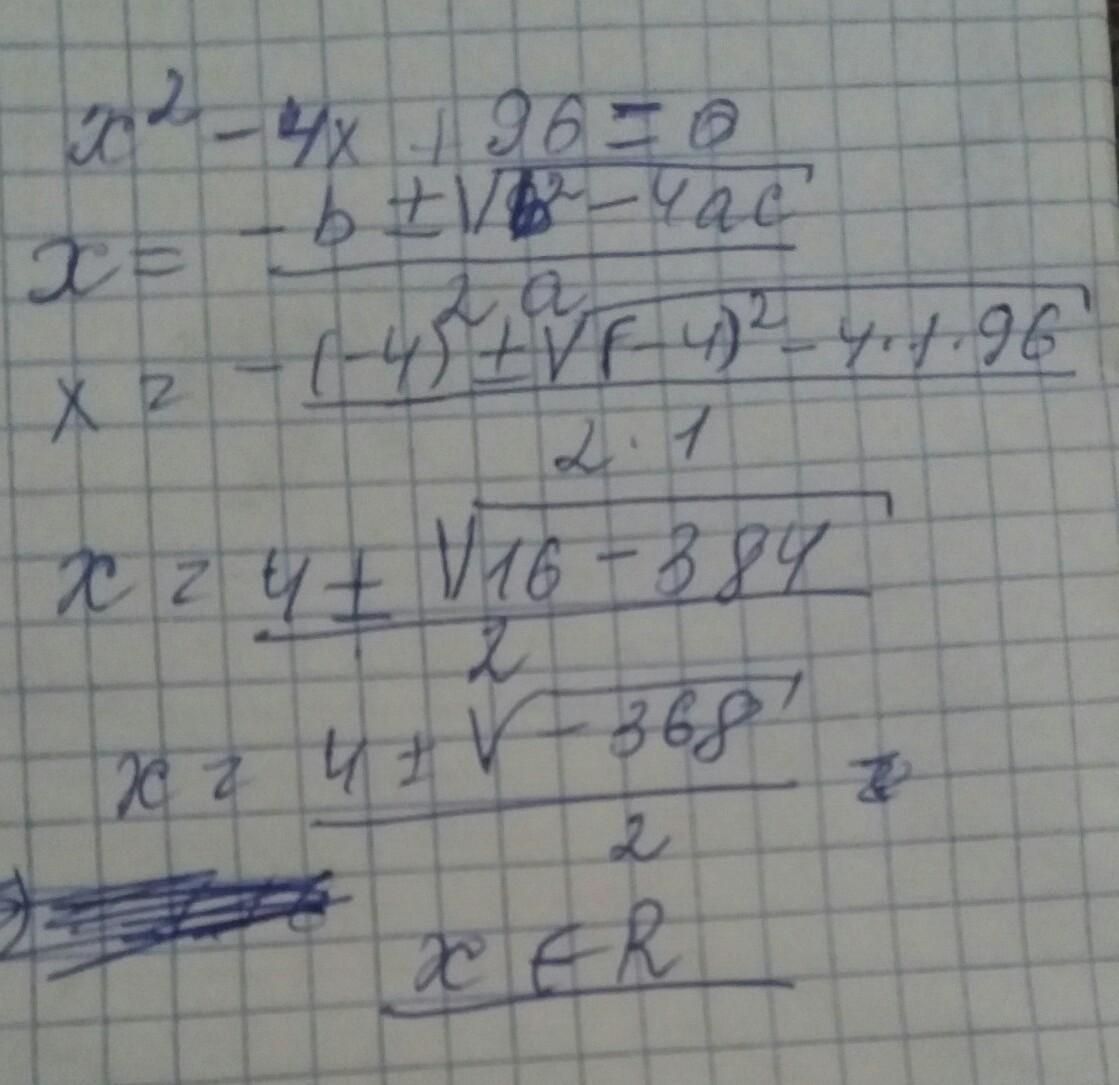 x² - 4x + 96 = 0
x = -b ± √b² - 4ac / 2a
x = -(-4) ± √(-4)² - 4·1·96 / 2·1
x = 4 ± √16 - 384 / 2
x = 4 ± √-368 / 2 =
x ∈ R